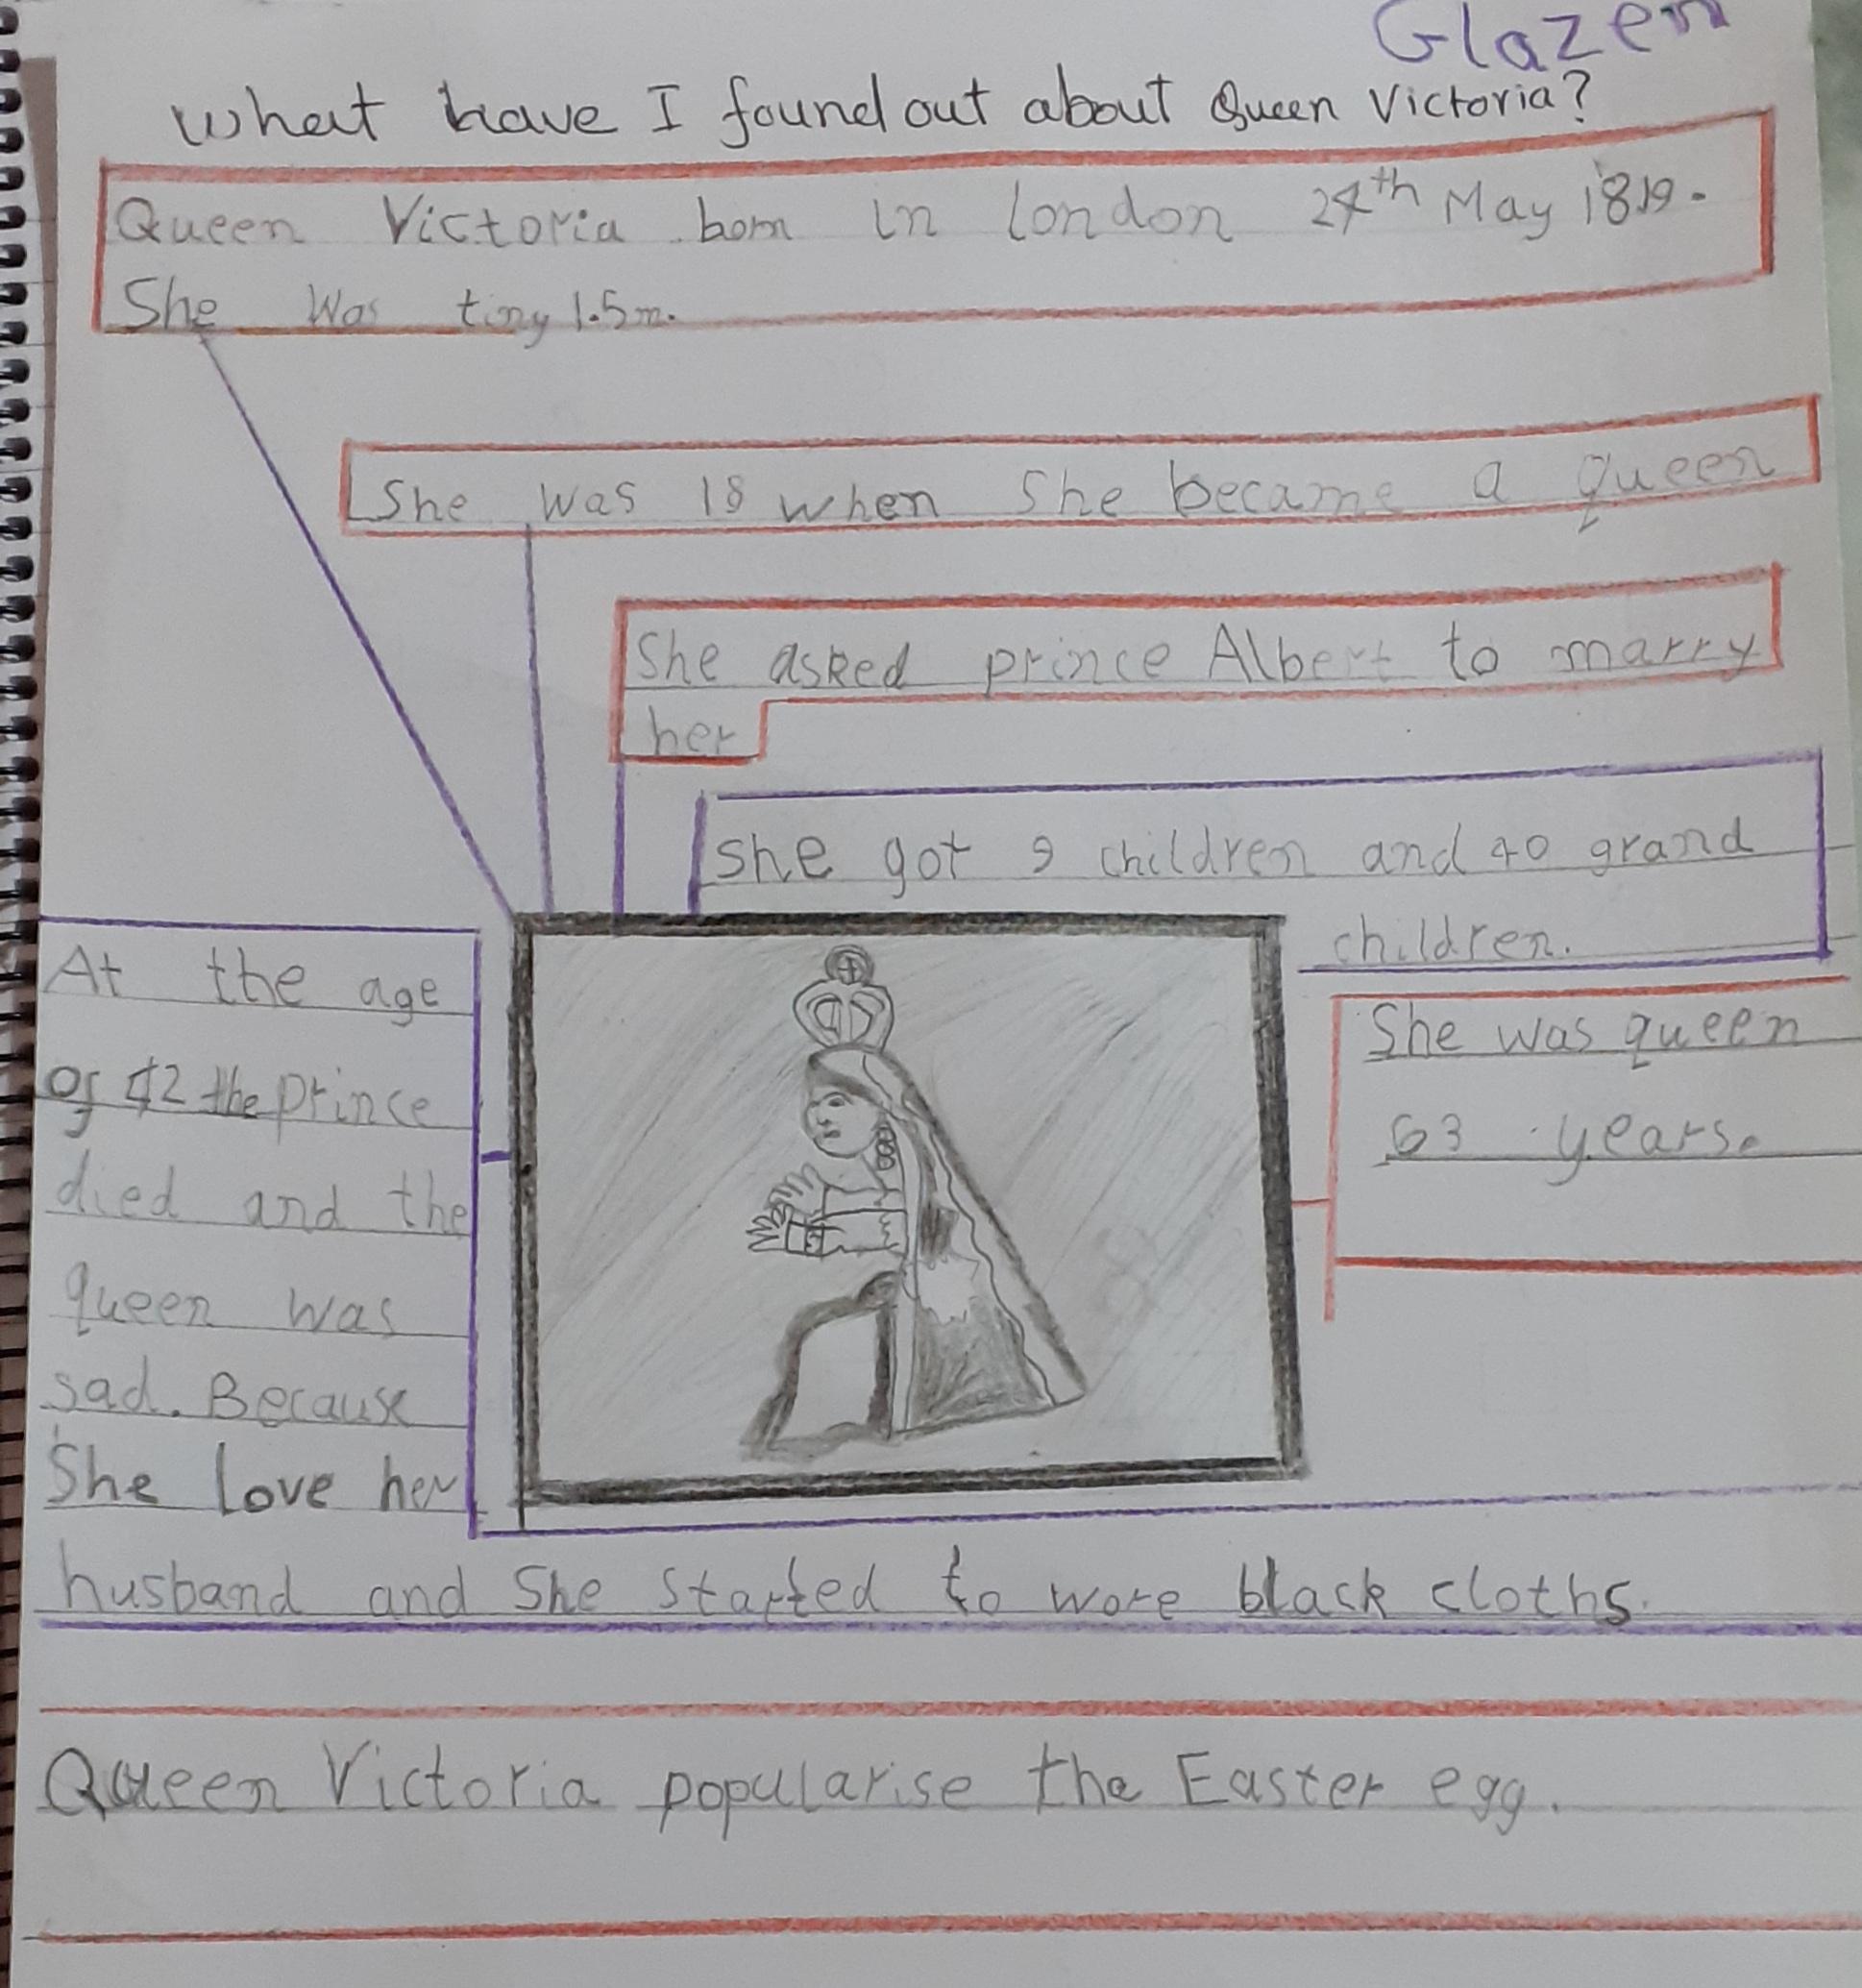 Glazen
What have I found out about Queen Victoria?
Queen Victoria born in london 24th May 1819.
She was tiny 1.5m.
She was 18 when she became a queen
She asked prince Albert to marry
her
she got 9 children and 40 grand
children.
At the age
of 42 the prince
died and the
queen was
sad. Because
She love her
husband and She started to wore black cloths.
She was queen
63 years.
Queen Victoria popularise the Easter egg.